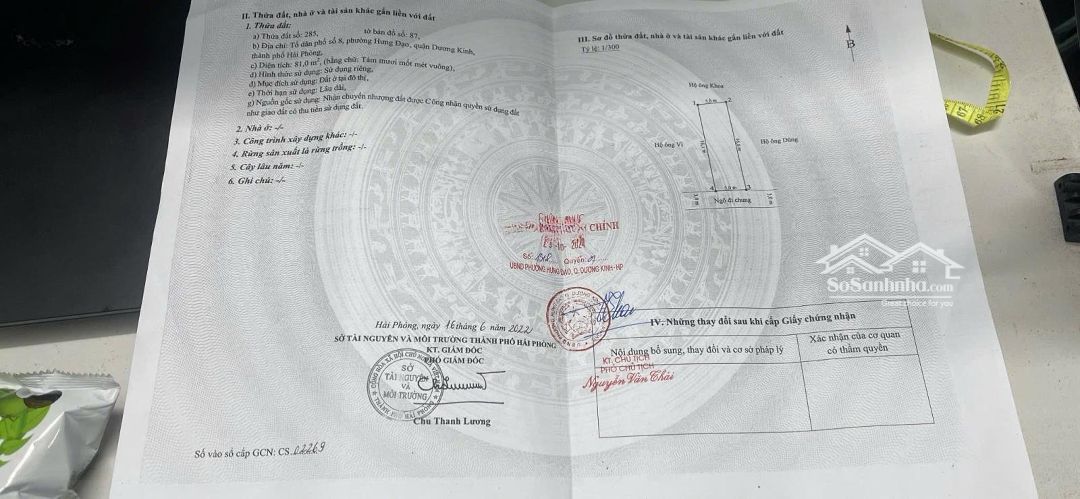 II. Thửa đất, nhà ở và tài sản khác gắn liền với đất
1. Thửa đất:
a) Thửa đất số: 285, tờ bản đồ số: 87,
b) Địa chỉ: Tổ dân phố số 8, phường Hưng Đạo, quận Dương Kinh,
thành phố Hải Phòng,
c) Diện tích: 81,0 m², (bằng chữ: Tám mươi mốt mét vuông),
d) Hình thức sử dụng: Sử dụng riêng,
đ) Mục đích sử dụng: Đất ở tại đô thị,
e) Thời hạn sử dụng: Lâu dài,
g) Nguồn gốc sử dụng: Nhận chuyển nhượng đất được Công nhận quyền sử dụng đất
như giao đất có thu tiền sử dụng đất.
2. Nhà ở: -/-
3. Công trình xây dựng khác: -/-
4. Rừng sản xuất là rừng trồng: -/-
5. Cây lâu năm: -/-
6. Ghi chú: -/-
Hải Phòng, ngày 16 tháng 6 năm 2022
SỞ TÀI NGUYÊN VÀ MÔI TRƯỜNG THÀNH PHỐ HẢI PHÒNG
KT. GIÁM ĐỐC
PHÓ GIÁM ĐỐC
SỞ
TÀI NGUYÊN
VÀ
MÔI TRƯỜNG
Chu Thanh Lương
Số vào sổ cấp GCN: CS 02269
III. Sơ đồ thửa đất, nhà ở và tài sản khác gắn liền với đất
Tỷ lệ: 1/300
B
Hộ ông Khoa
1
2
Hộ ông Vi
Hộ ông Dũng
4
3
Ngõ đi chung
CHÍNH
Số: Quyển:
UBND PHƯỜNG HƯNG ĐẠO, Q. DƯƠNG KINH-HP
IV. Những thay đổi sau khi cấp Giấy chứng nhận
Nội dung bổ sung, thay đổi và cơ sở pháp lý
Xác nhận của cơ quan
có thẩm quyền
KT. CHỦ TỊCH
PHÓ CHỦ TỊCH
Nguyễn Văn Thái
SoSanhnha.com
Great choice for you